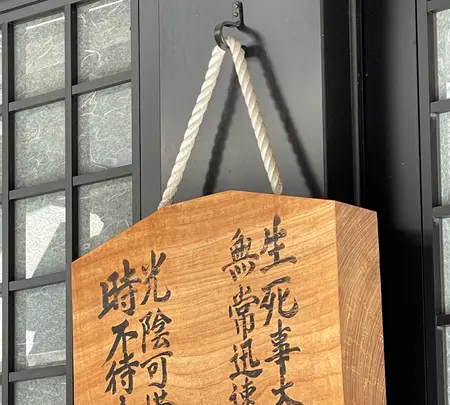 生死事大
無常迅速
光陰可惜
時不待